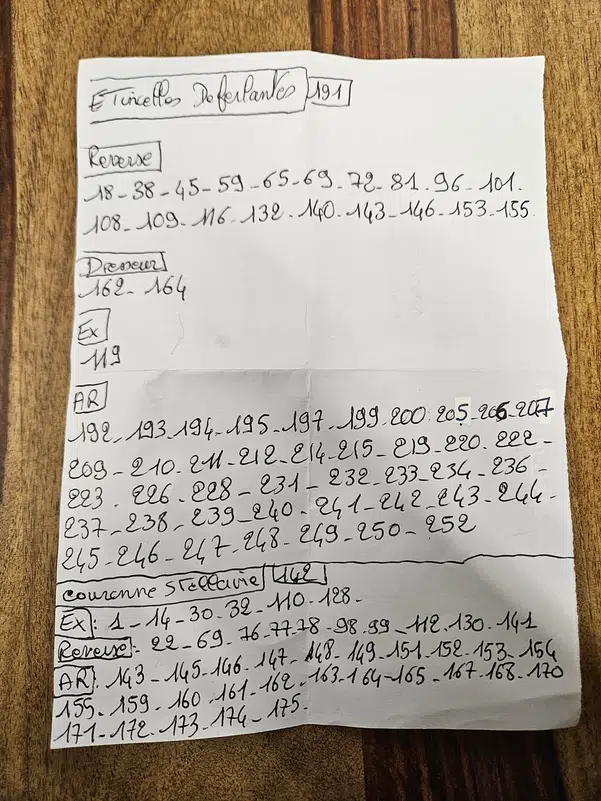 Etincelles Deferlantes 191
Reverse
18-38-45-59-65-69-72-81.96-101.
108-109-116-132-140-143-146-153-155.
Dresseur
162-164
Ex
119
AR
192-193-194-195-197-199.200.205-206-207
209-210-211-212-214-215-219-220.222-
223.226-228-231-232-233-234-236-
237-238-239-240-241-242-243-244-
245-246-247-248-249-250-252
couronne Stellaire 142
Ex: 1-14-30-32-110-128-
Reverse: 22-69-76-77-78-98.99-112.130.141
AR: 143-145-146-147-148-149-151-152-153-154
155-159-160-161-162-163-164-165-167-168-170
171-172-173-174-175.